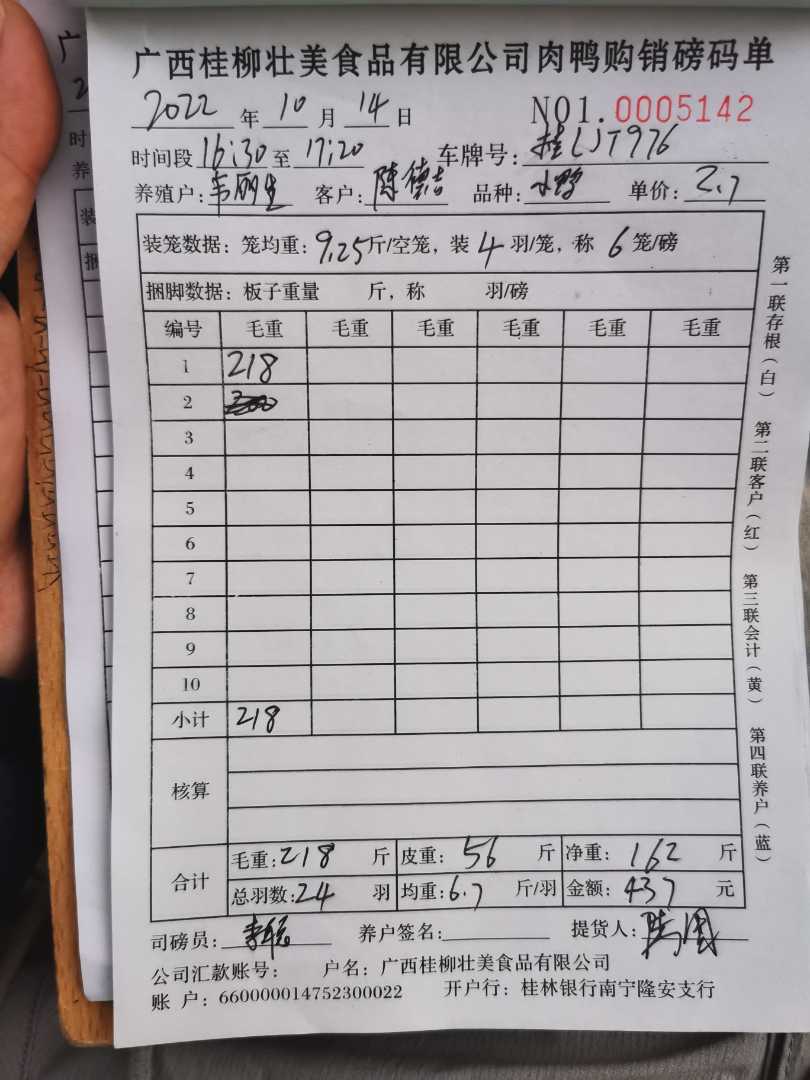 广西桂柳壮美食品有限公司肉鸭购销磅码单
2022 年 10 月 14 日 NO1. 0005142
时间段 16:30 至 17:20 车牌号: 桂LJT976
养殖户: 韦丽生 客户: 陈德吉 品种: 水鸭 单价: 2.7
装笼数据: 笼均重: 9.25 斤/空笼, 装 4 羽/笼, 称 6 笼/磅
捆脚数据: 板子重量 斤, 称 羽/磅
编号 毛重 毛重 毛重 毛重 毛重 毛重
1 218
2
3
4
5
6
7
8
9
10
小计 218
核算
合计
毛重: 218 斤 皮重: 56 斤 净重: 162 斤
总羽数: 24 羽 均重: 6.7 斤/羽 金额: 437 元
司磅员: 养户签名: 提货人:
公司汇款账号: 户名: 广西桂柳壮美食品有限公司
账 户: 660000014752300022 开户行: 桂林银行南宁隆安支行
第一联存根(白) 第二联客户(红) 第三联会计(黄) 第四联养户(蓝)